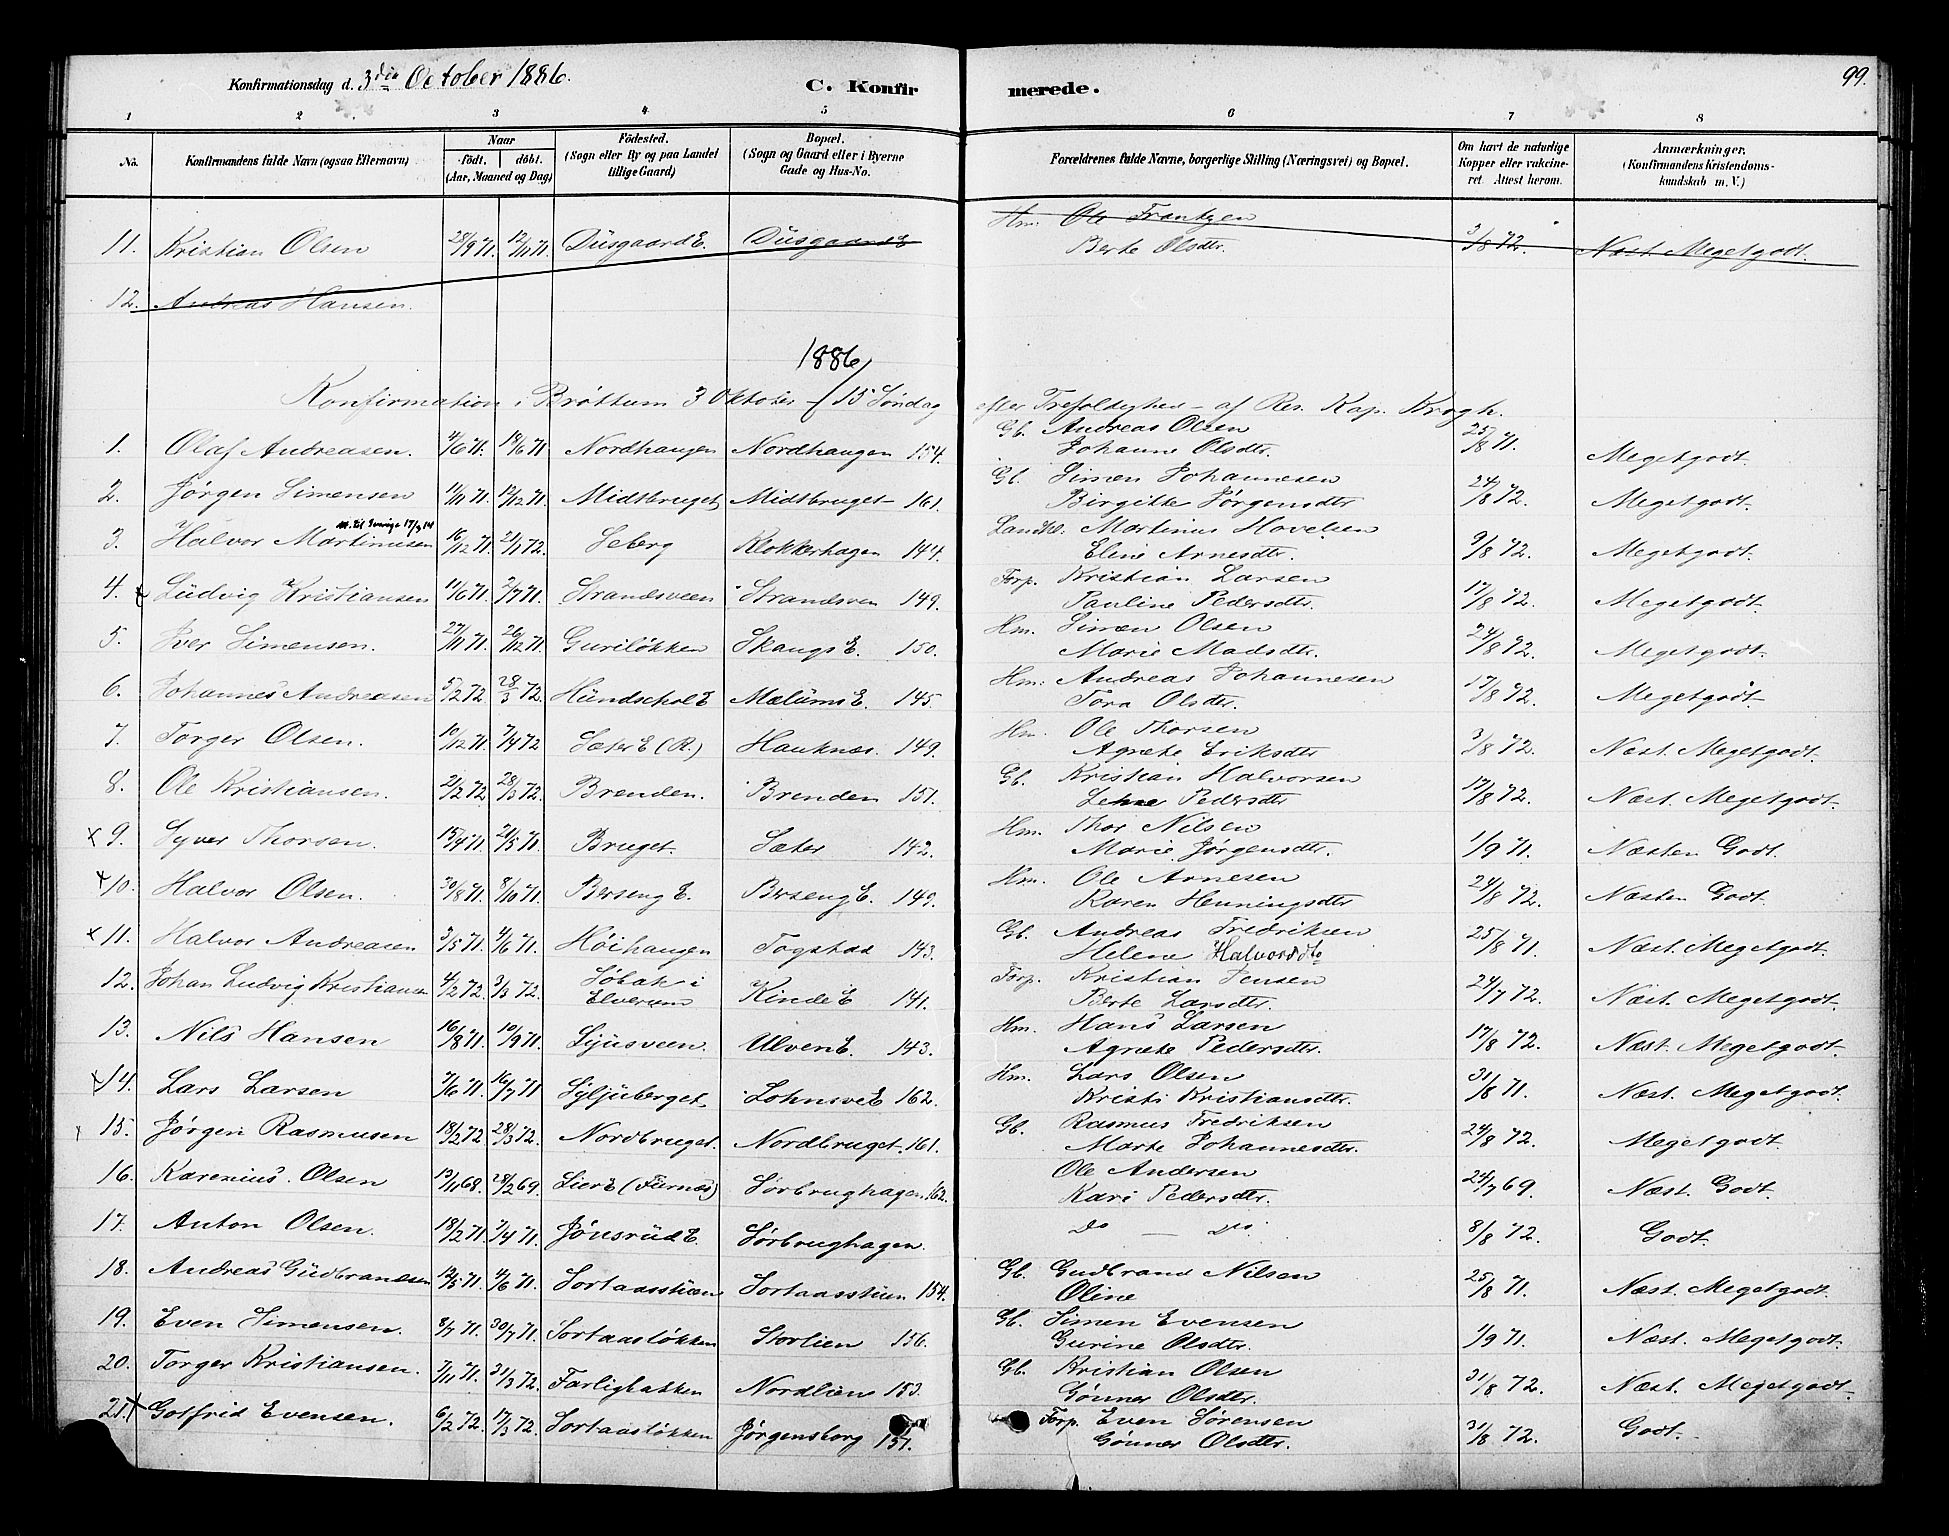 Konfirmationsdag d. 3die October 1886.
C. Konfirmerede.
99.
1 2 3 4 5 6 7 8
No.
Konfirmandens fulde Navn (ogsaa Efternavn)
Naar
födt. döbt.
(Aar, Maaned og Dag)
Födested.
(Sogn eller By og paa Landet
tillige Gaard)
Bopæl.
(Sogn og Gaard eller i Byerne
Gade og Hus-No.
Forældrenes fulde Navne, borgerlige Stilling (Næringsvei) og Bopæl.
Om havt de naturlige
Kopper eller vakcine-
ret. Attest herom.
Anmærkninger,
(Konfirmandens Kristendoms-
kundskab m. V.)
11. Kristian Olsen 28/9 71. 12/11 71. Dusgaard E. Dusgaard E Hm. Ole Frantzen
Berte Olsdtr. 3/8 72. Næst. Megetgodt.
12. Andreas Hansen.
1886
Konfirmation i Brøttum 3 Oktober - (15 Søndag efter Trefoldighed - af Res. Kap. Krogh.
1. Olaf Andreasen. 4/6 71. 18/6 71 Nordhaugen Nordhaugen 154. Gb. Andreas Olsen
Johanne Olsdtr. 25/8 71. Megetgodt.
2. Jørgen Simensen 11/11 71. 12/12 71. Midtbruget Midtbruget 161. Gb. Simen Johannesen
Birgitte Jørgensdtr 24/8 72. Megetgodt.
m. til Sverige 17/3 14
3. Halvor Martinusen 16/12 71. 21/1 72. Seberg Klokkerhagen 144. Martinus Hovelsen
Eline Arnesdtr. 9/8 72. Megetgodt.
4. x Ludvig Kristiansen 11/6 71. 2/7 71. Strandsveen Strandsven 149. Torp. Kristian Larsen
Pauline Pedersdtr. 17/8 72. Megetgodt.
5. Iver Simensen. 27/11 71. 26/12 71. Guriløkken Skaugs E. 150. Hm. Simen Olsen
Marie Madsdtr. 24/8 72. Megetgodt.
6. Johannes Andreasen 5/2 72 28/3 72. Hundschol E Mælums E. 145. Hm. Andreas Johannesen
Tora Olsdtr. 17/8 72. Megetgodt.
7. Torger Olsen. 10/12 71. 7/4 72 Sæter E (R.) Hauknæs. 149. Hm. Ole Thorsen
Agnete Eriksdtr. 3/8 72. Næst. Megetgodt.
8. Ole Kristiansen. 21/2 72 28/3 72. Brenden. Brenden 151. Gb. Kristian Halvorsen
Lehne Pedersdtr 17/8 72. Næst. Megetgodt.
x 9. Syver Thorsen. 15/4 71. 21/5 71. Bruget. Sæter 142. Hm. Thor Nilsen
Marie Jørgensdtr. 1/9 71. Næsten Godt.
x 10. Halvor Olsen. 30/8 71. 8/10 71. Berseng E. Berseng E. 149. Hm. Ole Arnesen
Karen Henningsdtr 24/8 72. Næsten Godt.
x 11. Halvor Andreasen 3/5 71. 4/6 71. Høihaugen Togstad 143. Gb. Andreas Fredriksen
Helene Halvorsdt 25/8 71. Næst. Megetgodt.
12. Johan Ludvig Kristiansen 4/2 72. 3/3 72. Søbak i
Elverum Kinde E 141. Torp. Kristian Jensen
Berte Larsdtr. 24/7 72. Næst. Megetgodt.
13. Nils Hansen 16/8 71. 10/9 71. Ljusveen. Ulven E. 143. Hm. Hans Larsen
Agnete Pedersdtr. 17/8 72. Næst. Megetgodt.
x 14. Lars Larsen 7/6 71. 16/7 71 Syljuberget Lohnsve E 162. Hm. Lars Olsen
Kristi Kristiansdtr. 31/8 71. Næst. Megetgodt.
x 15. Jørgen Rasmusen 18/2 72 28/3 72. Nordbruget. Nordbruget. 161. Gb. Rasmus Fredriksen
Marte Johannesdtr. 24/8 72. Megetgodt.
16. Karenius Olsen 13/11 68. 28/2 69. Lier E (Furnæs) Sørbrughagen 162. Ole Andersen
Kari Pedersdtr. 24/7 69. Næst. Godt.
17. Anton Olsen. 18/2 71. 7/4 71. Jønsrud E. Sørbrughagen. Do — Do. 8/8 72. Godt.
18. Andreas Gudbrandsen 12/5 71. 4/6 71. Sortaasstuen Sortaasstuen 154. Gb. Gudbrand Nilsen
Oline 25/8 71. Næst. Megetgodt.
19. Even Simensen. 8/7 71. 30/7 71. Sortaasløkken Storlien 156. Gb. Simen Evensen
Gurine Olsdtr. 1/9 71. Næst. Megetgodt.
20. Torger Kristiansen. 7/11 71. 31/3 72. Farligbakken Nordlien 153. Gb. Kristian Olsen
Gønner Olsdtr. 31/8 72. Næst. Megetgodt.
21. x Gotfrid Evensen. 6/2 72. 17/3 72. Sortaasløkken Jørgensborg 157. Torp. Even Sørensen
Gønner Olsdtr. 31/8 72. Godt.